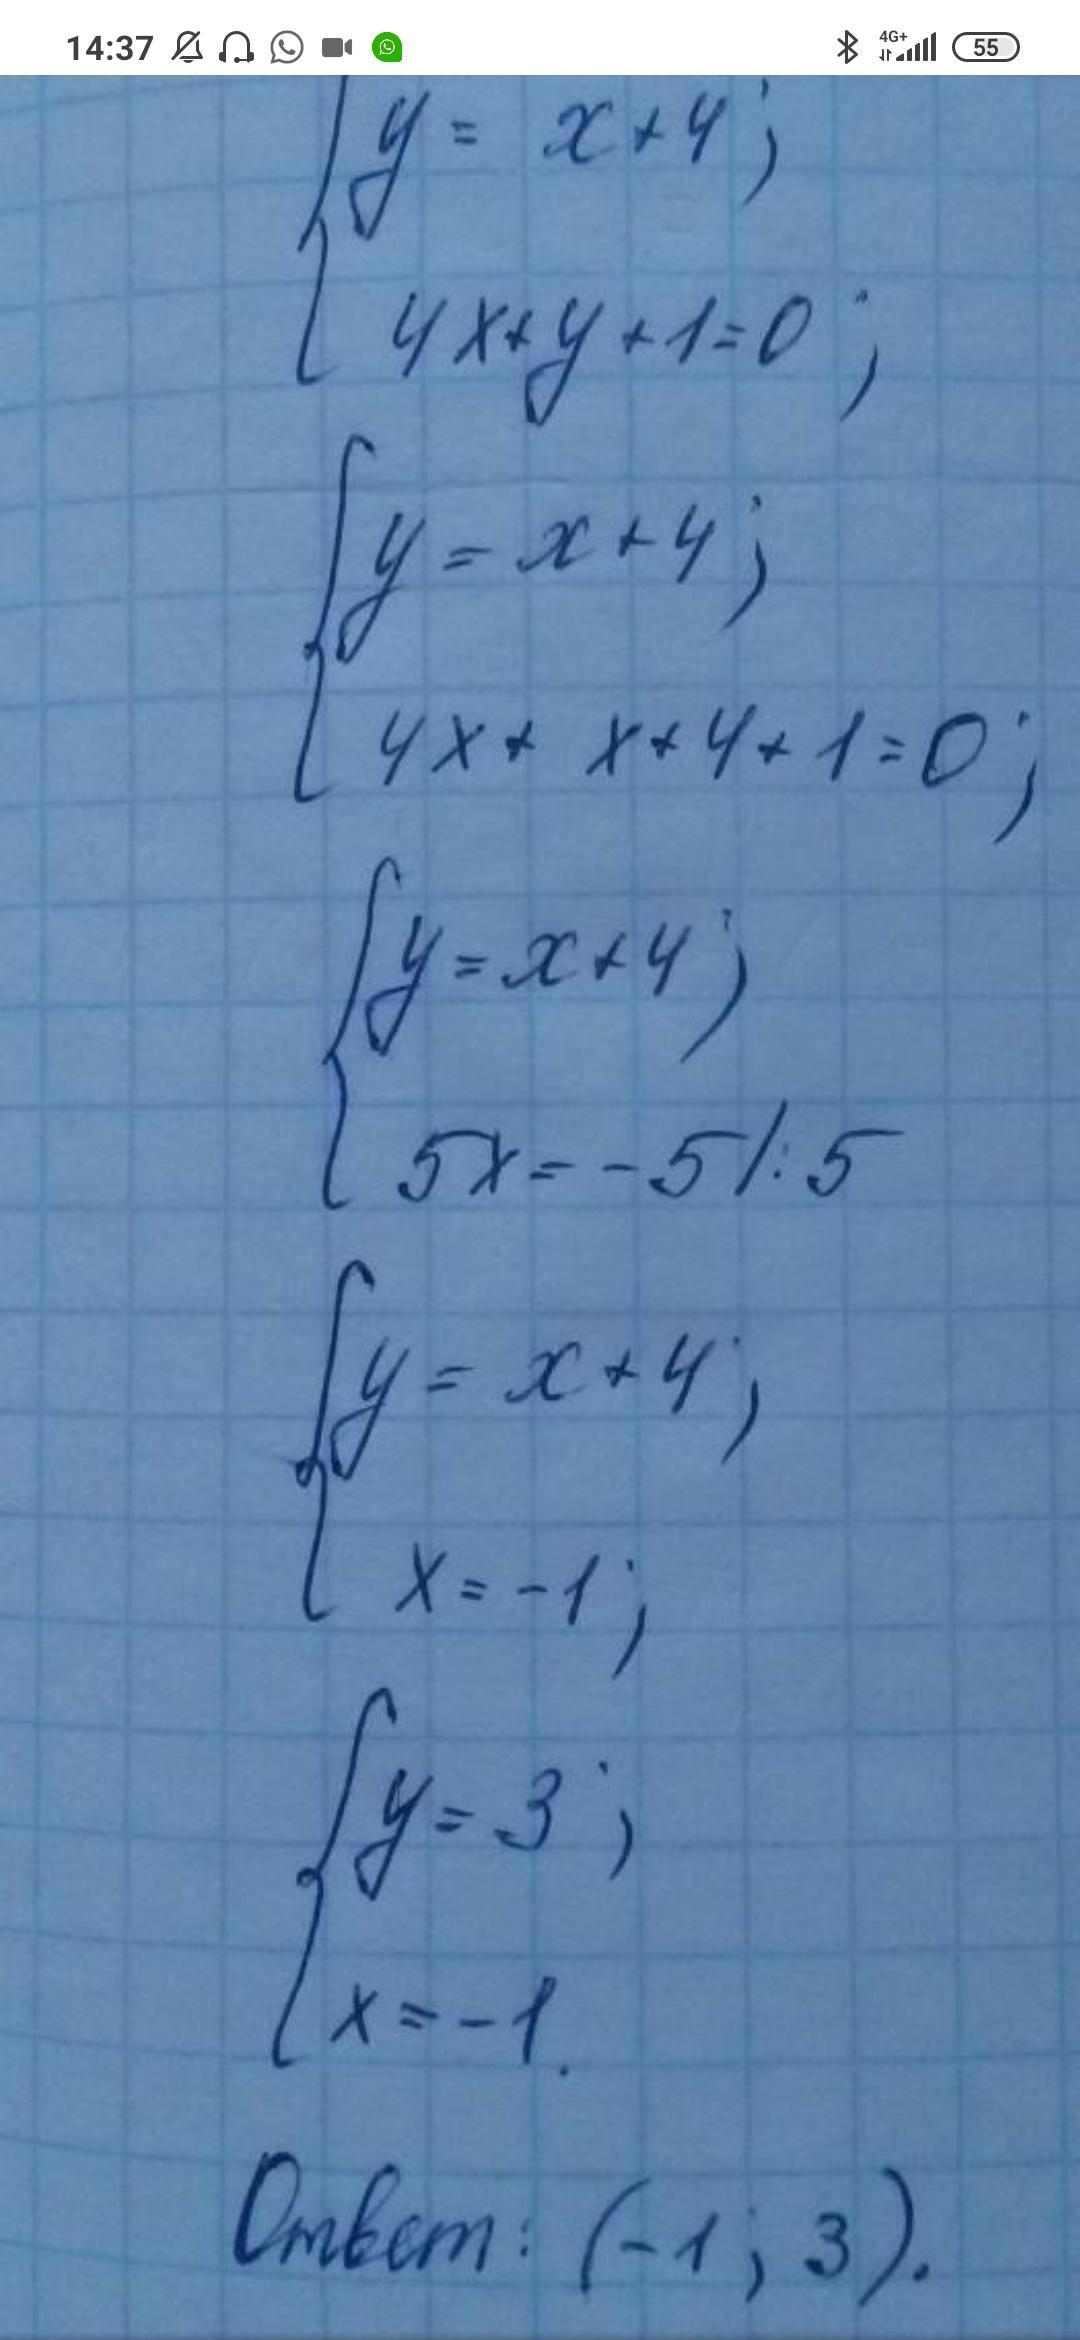 14:37 4G+ 55
y = x+4;
4x+y+1=0;
y = x+4;
4x+ x+4+1=0;
y=x+4;
5x=-5/:5
y= x+4;
x=-1;
y=3;
x=-1.
Ответ: (-1; 3).